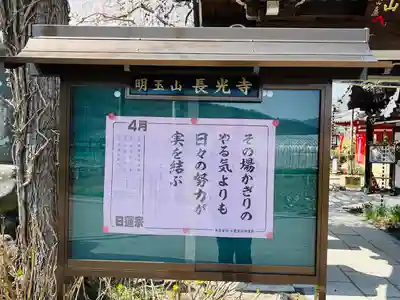 明玉山 長光寺
その場かぎりの
やる気よりも
日々の努力が
実を結ぶ
4月
日蓮宗